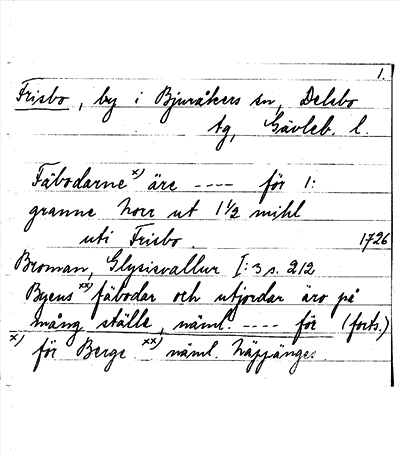 1.
Frisbo, by i Bjuråkers sn, Delsbo
tg, Gävleb. l.
Fäbodarne x) äre ---- för 1:
granne norr ut 1 1/2 mihl
uti Frisbo 1726
Broman, Glysisvallur I:3 s. 212
Byens xx) fäbodar och utjordar äro på
mång ställe, näml. ---- för (forts.)
x) för Berge xx) näml. Näppänge.